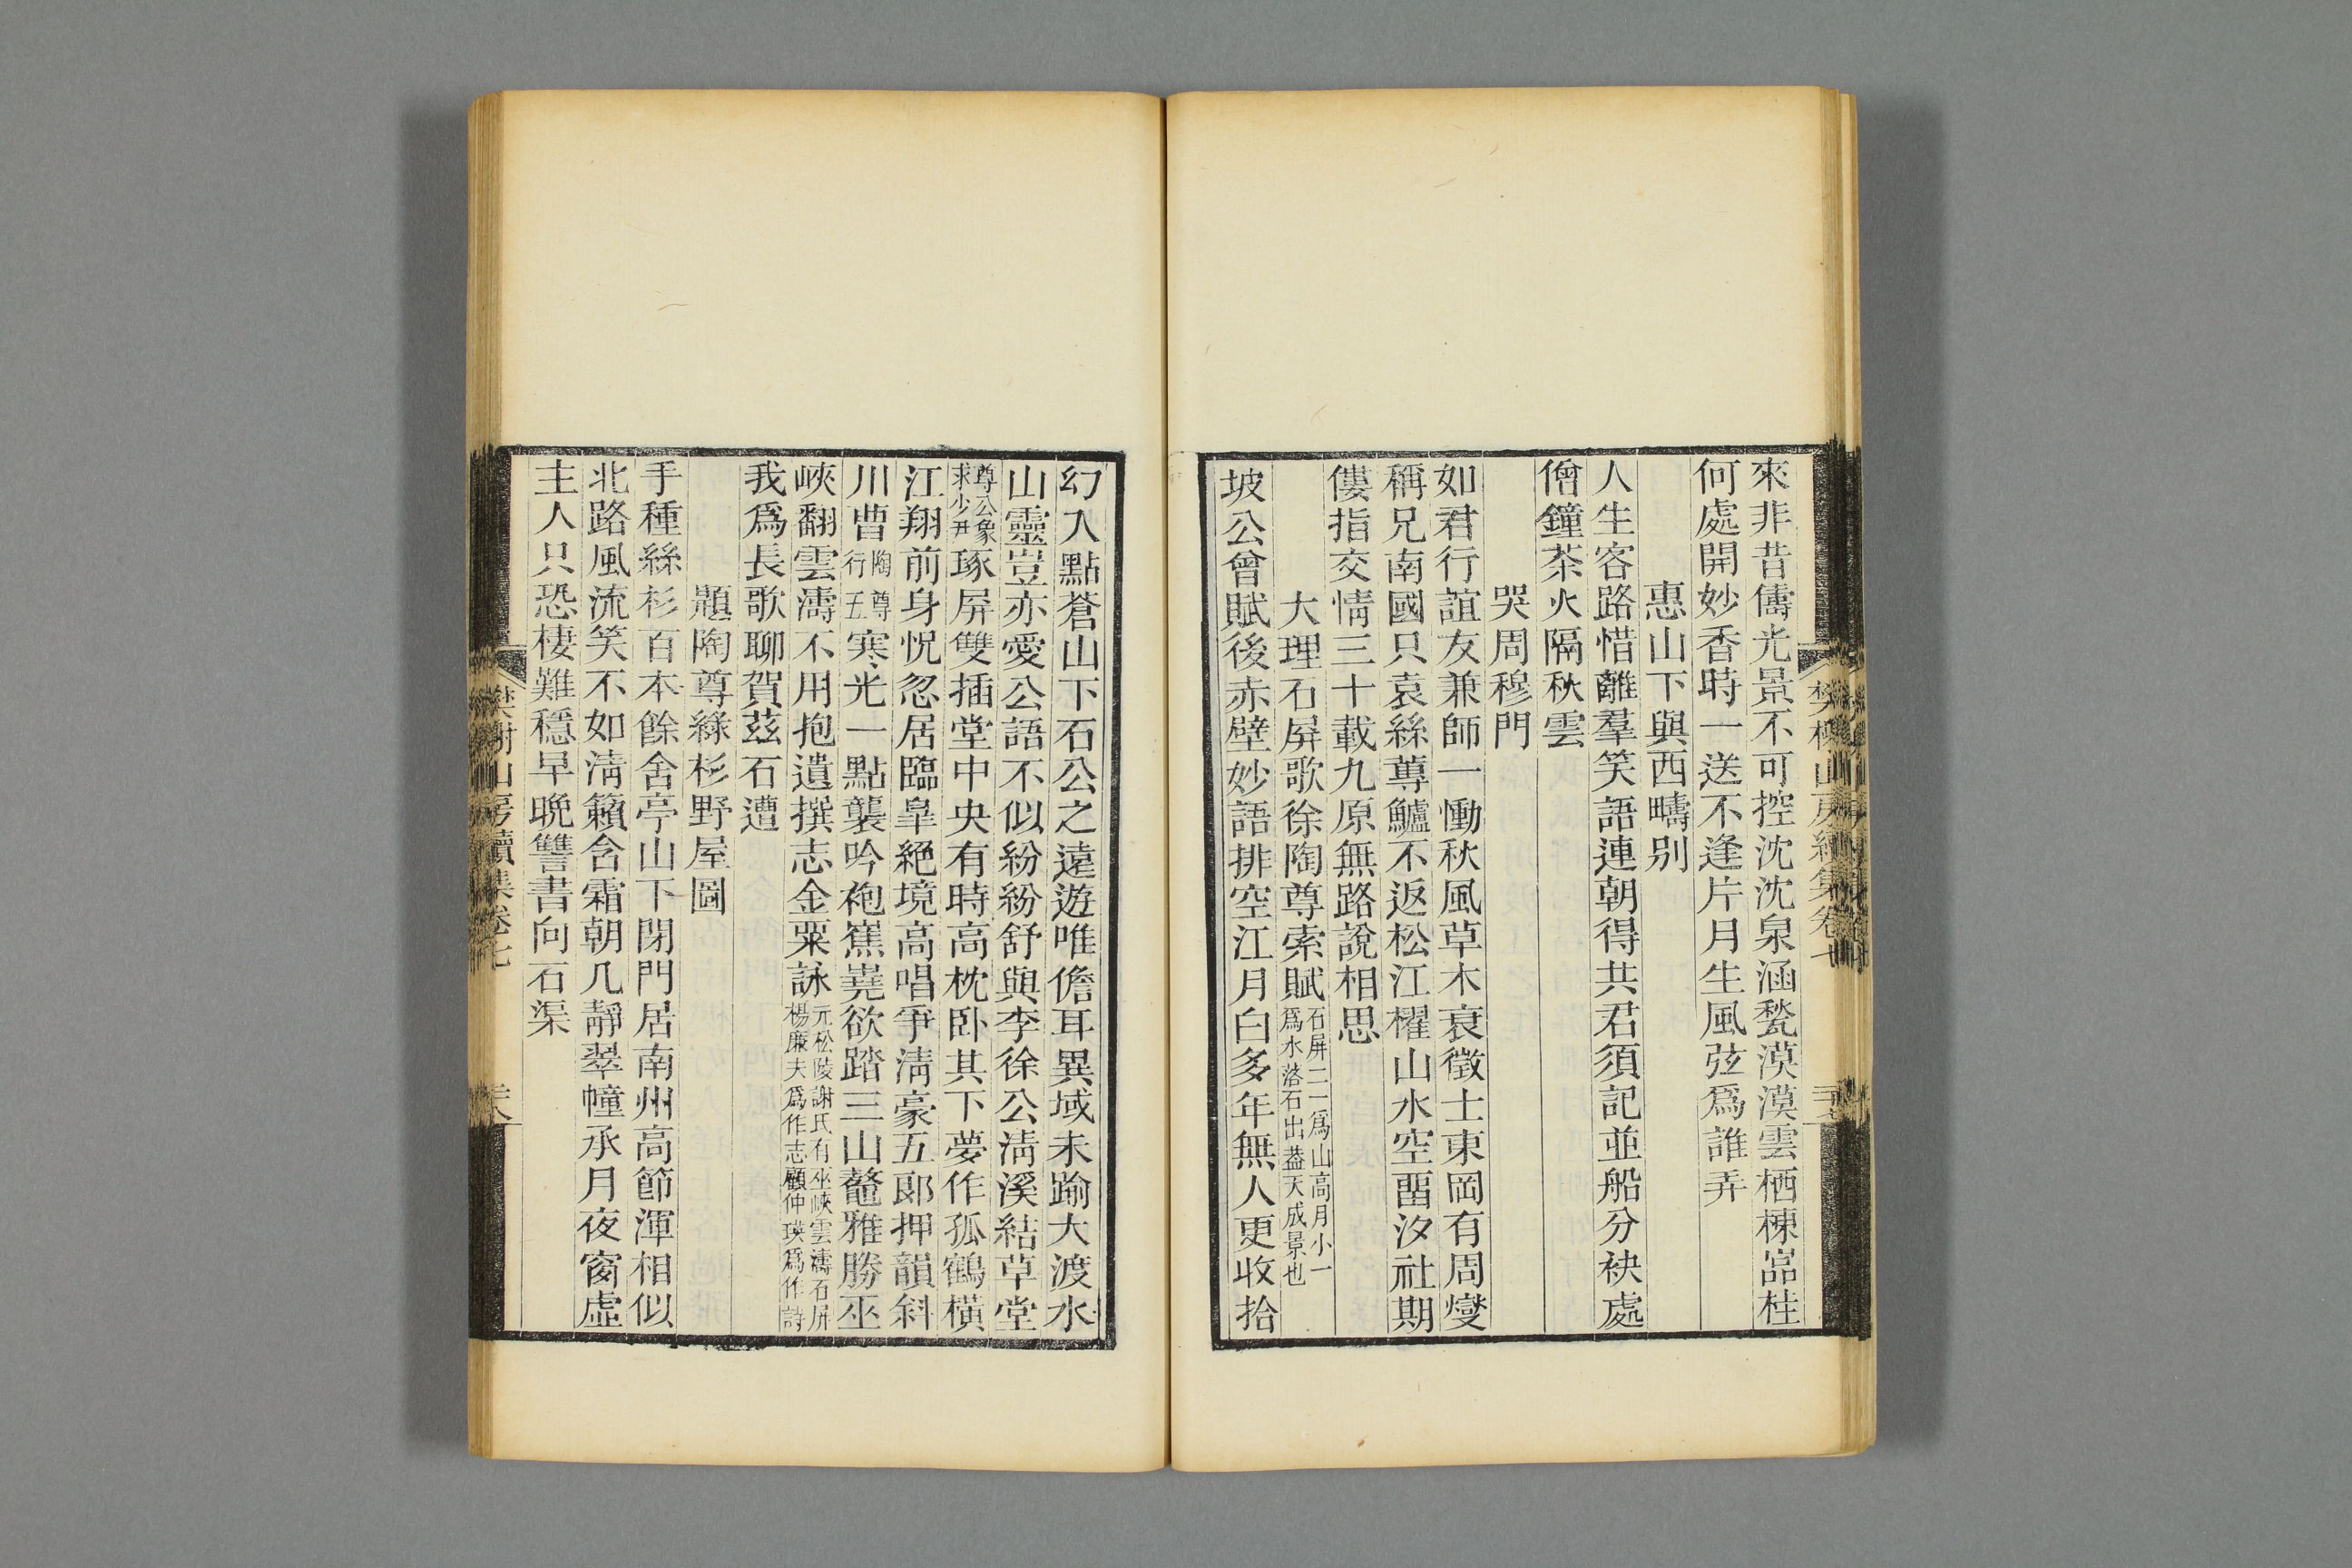 來非昔儔光景不可控沈沈泉涵甃漠漠雲栖棟嵓桂
何處開妙香時一送不逢片月生風弦爲誰弄
惠山下與西疇别
人生客路惜離羣笑語連朝得共君須記並船分袂處
僧鐘茶火隔秋雲
哭周穆門
如君行誼友兼師一慟秋風草木衰徵士東岡有周燮
稱兄南國只袁絲蓴鱸不返松江櫂山水空畱汐社期
僂指交情三十載九原無路說相思
大理石屏歌徐陶尊索賦石屏二一爲山高月小一
爲水落石出葢天成景也
坡公曾賦後赤壁妙語排空江月白多年無人更收拾
幻入點蒼山下石公之遠遊唯儋耳異域未踰大渡水
山靈豈亦愛公語不似紛紛舒與李徐公淸溪結草堂
尊公象
求少尹琢屏雙插堂中央有時高枕卧其下夢作孤鶴橫
江翔前身怳忽居臨臯絕境高唱爭淸豪五郞押韻斜
川曹陶尊
行五寒光一點襲吟袍窯嶤欲踏三山鼇雅勝巫
峽翻雲濤不用抱遺撰志金粟詠元松陵謝氏有巫峽雲濤石屏
楊廉夫爲作志顧仲瑛爲作詩
我爲長歌聊賀茲石遭
題陶尊綠杉野屋圖
手種絲杉百本餘舍亭山下閉門居南州高節渾相似
北路風流笑不如淸籟含霜朝几靜翠幢承月夜窗虛
主人只恐棲難穩早晚讐書向石渠
樊榭山房續集卷七